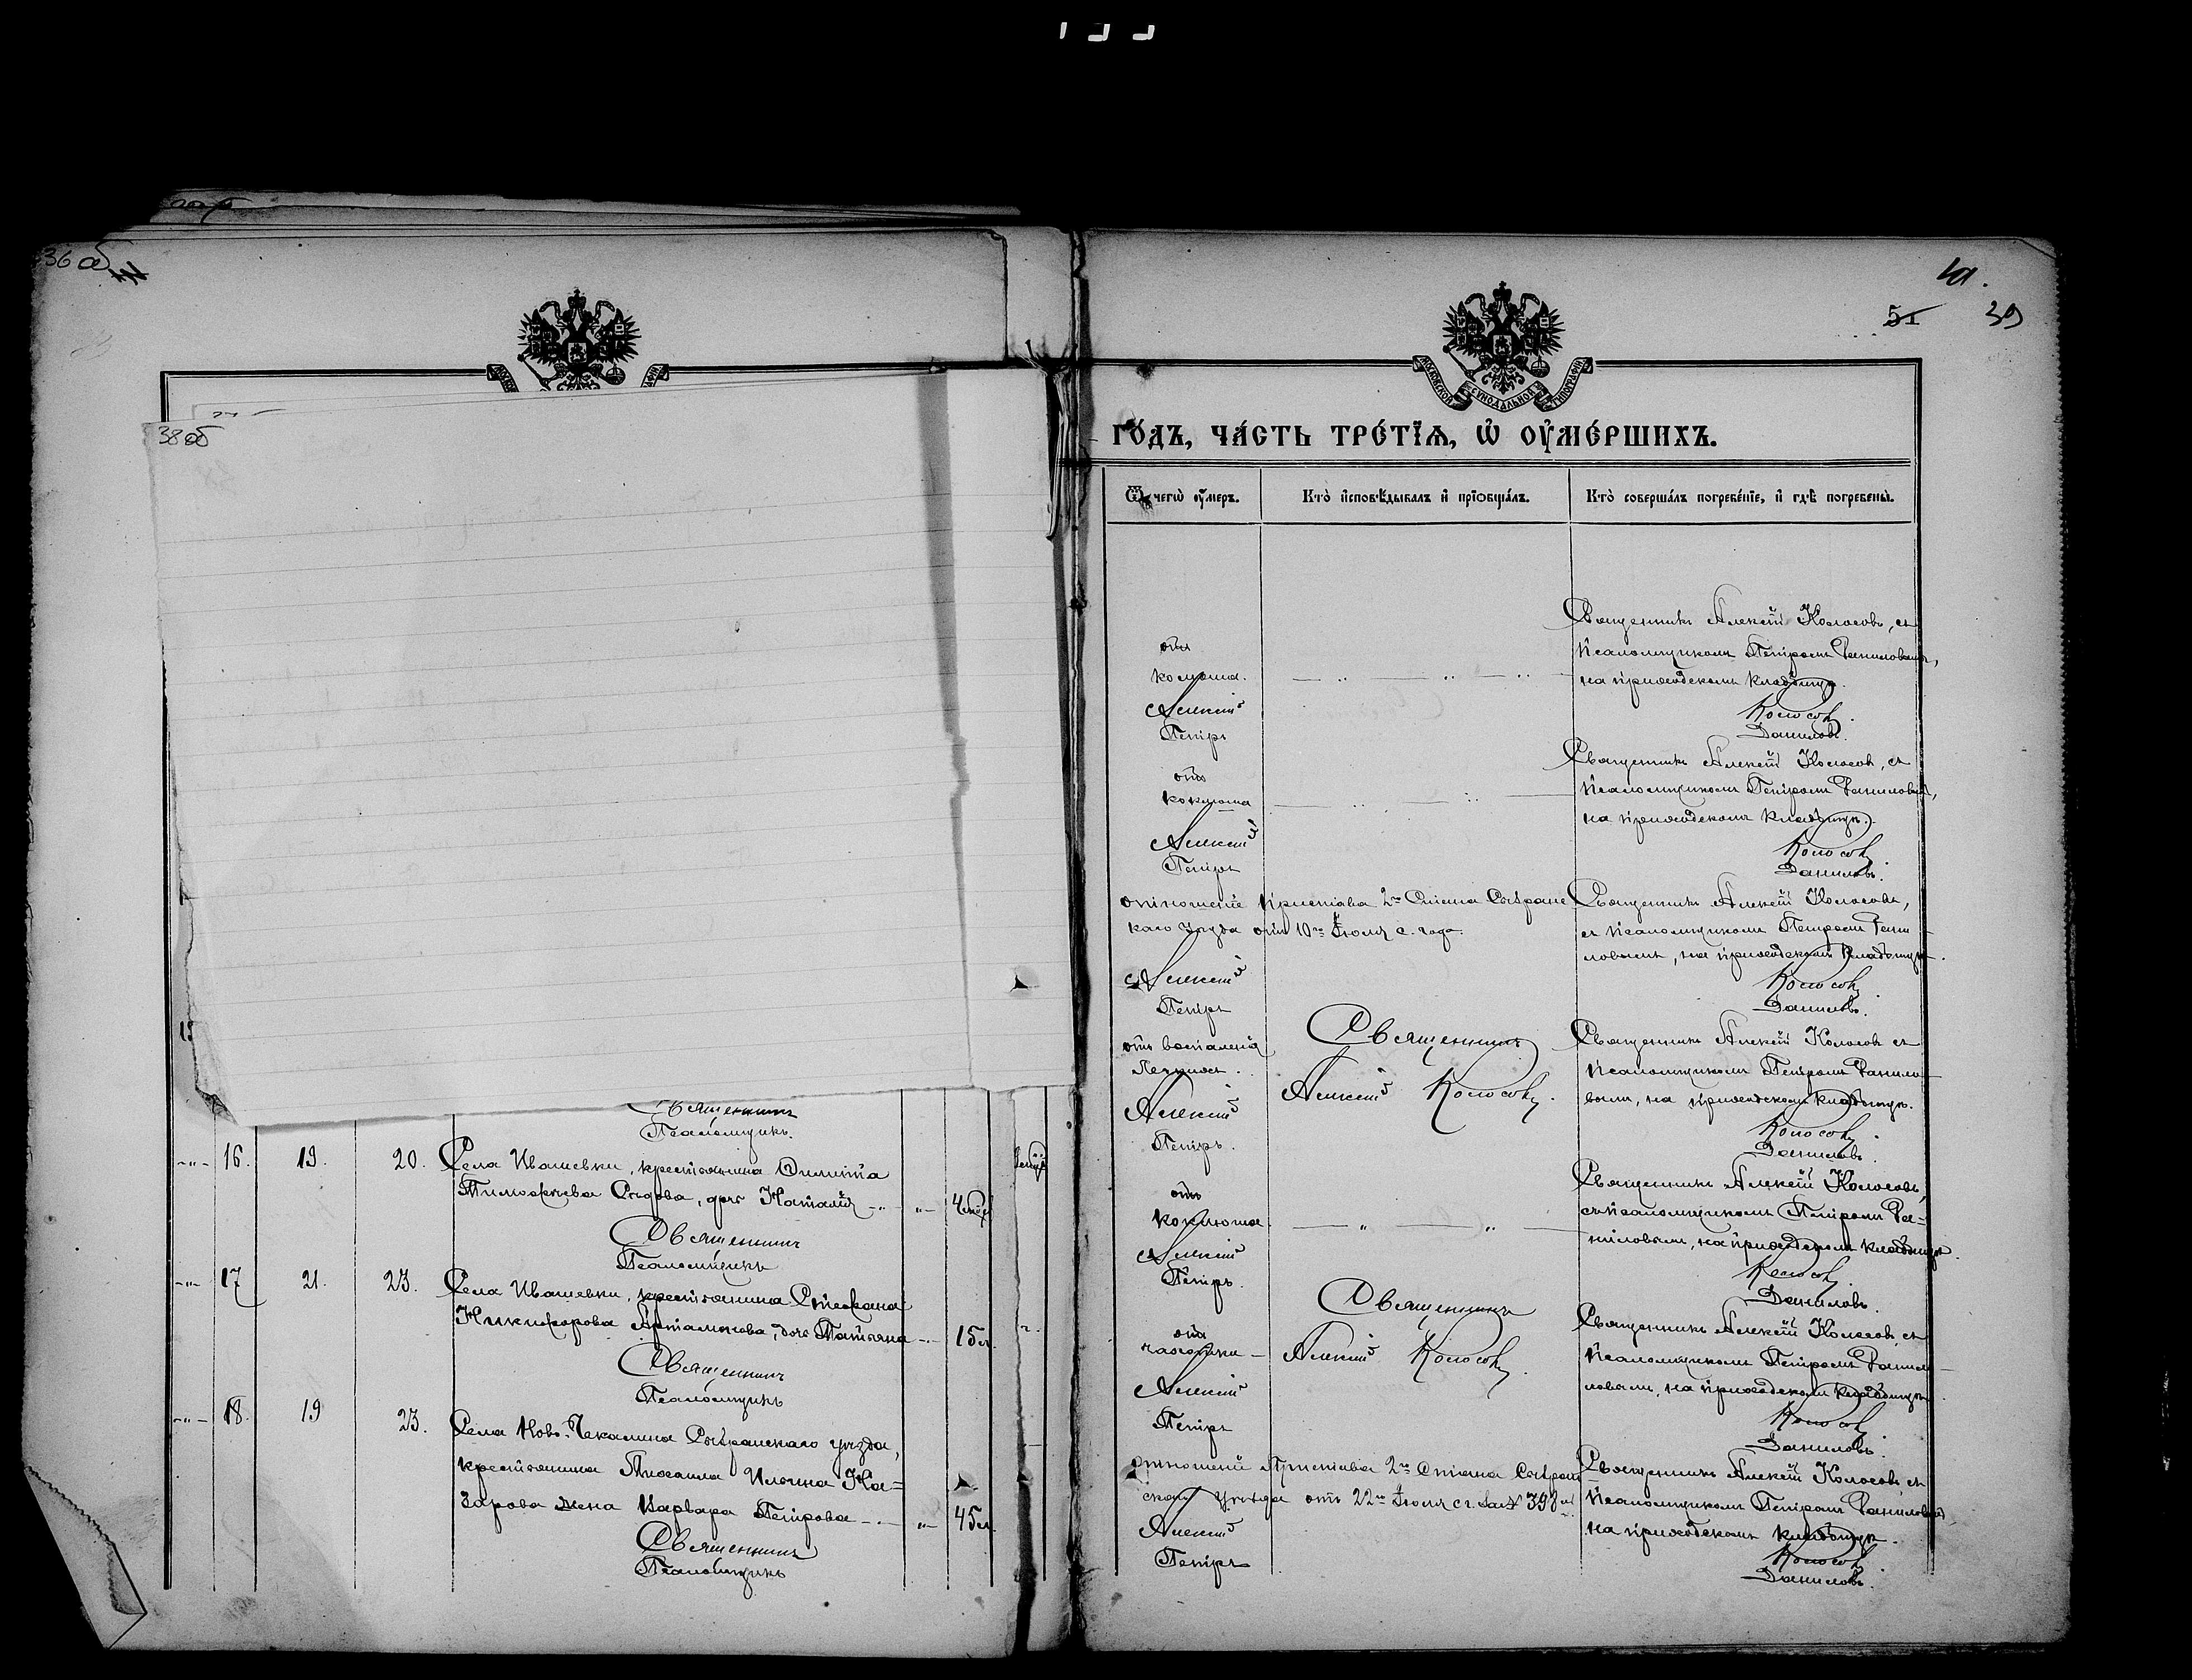 36 об
38 об
51
39
МОСКОВСКОЙ СѴНОДАЛЬНОЙ ТИПОГРАФІИ
ГО́ДЪ, ЧА́СТЬ ТРЕ́ТЇѦ, Ѡ҆ ОУ҆МЕ́РШИХЪ.
Ѿ чегѡ̀ оу҆́меръ.
Кто̀ и҆сповѣ́дывалъ и҆ прїѡбща́лъ.
Кто̀ соверша́лъ погребе́нїе, и҆ гдѣ̀ погребены̀.
Священникъ
Псаломщикъ.
16. 19. 20. Села Ивашевки, крестьянина Филиппа
Тимофѣева Сѣдова, дочь Наталія
Священникъ
Псаломщикъ
17 21. 23. Села Ивашевки, крестьянина Стефана
Никифорова Артамонова, дочь Татьяна 15 л.
Священникъ
Псаломщикъ
18. 19 23. Села Ново-Чекалина Сызранскаго уѣзда,
крестьянина Михаила Ильина На=
зарова жена Варвара Петрова 45 л.
Священникъ
Псаломщикъ
отъ
коклюша.
Алексій
Петръ
Священникъ Алексій Колосовъ, съ
Псаломщикомъ Петромъ Даниловымъ,
на приходскомъ кладбищѣ.
Колосовъ.
Даниловъ.
отъ
коклюша
Алексій
Петръ
Священникъ Алексій Колосовъ, съ
Псаломщикомъ Петромъ Даниловымъ,
на приходскомъ кладбищѣ.
Колосовъ
Даниловъ.
отношеніе Пристава 2го Стана Сызранс
каго Уѣзда отъ 10го Іюля с. года.
Алексій
Петръ
Священникъ Алексій Колосовъ,
съ псаломщикомъ Петромъ Дани
ловымъ, на приходскомъ кладбищѣ.
Колосовъ.
Даниловъ.
отъ воспаленія
легкихъ.
Алексій
Петръ.
Священникъ
Алексій Колосовъ.
Священникъ Алексій Колосовъ съ
Псаломщикомъ Петромъ Данило
вымъ, на приходскомъ кладбищѣ.
Колосовъ.
Даниловъ.
отъ
коклюша.
Алексій
Петръ.
Священникъ Алексій Колосовъ,
съ псаломщикомъ Петромъ Да=
ниловымъ, на приходскомъ кладбищѣ.
Колосовъ.
Даниловъ.
отъ
чахотки
Алексій
Петръ
Священникъ
Алексій Колосовъ.
Священникъ Алексій Колосовъ съ
Псаломщикомъ Петромъ Дани
ловымъ, на приходскомъ кладбищѣ.
Колосовъ
Даниловъ.
отношеніи Пристава 2го Стана Сызран
скаго Уѣзда отъ 22го Іюля с. г. за № 398
Алексій
Петръ
Священникъ Алексій Колосовъ съ
Псаломщикомъ Петромъ Даниловымъ
на приходскомъ кладбищѣ.
Колосовъ
Даниловъ.